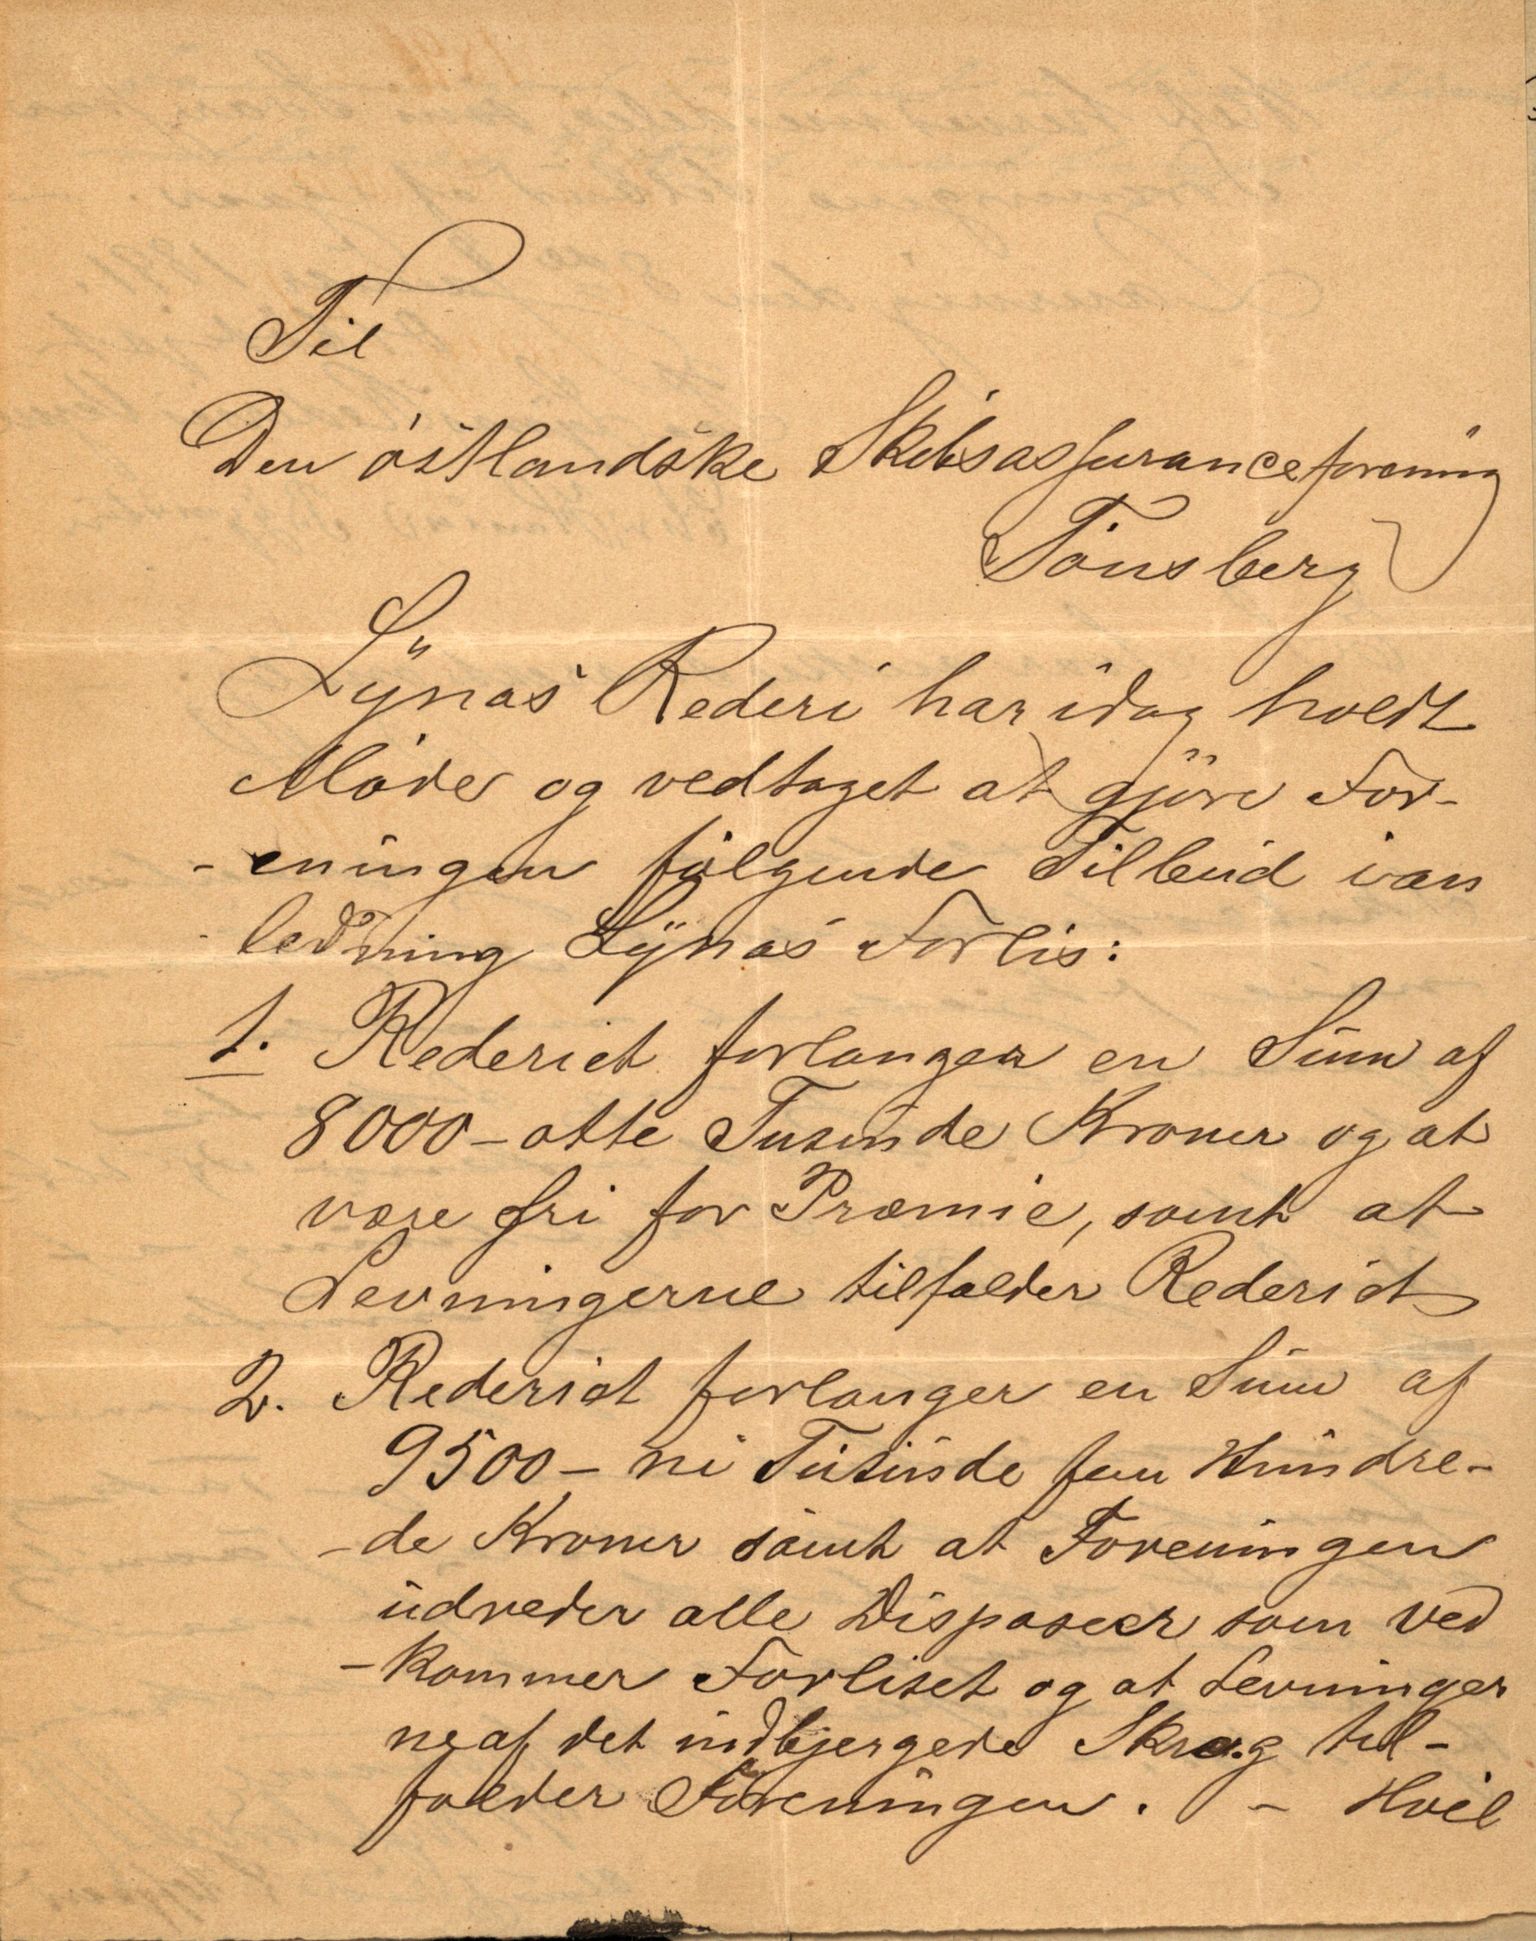 Til
Den östlandske Skibsassuranceforening
Tönsberg
Lÿnas Rederi har idag holdt
Möde og vedtaget at gjöre For-
-eningen fölgende Tilbud i an
-ledning Lÿnas Forlis:
1. Rederiet forlanger en Sum af
8000 – otte Tusinde Kroner og at
være fri for Præmie, samt at
Levningerne tilfalder Rederiet
2. Rederiet forlanger en Sum af
9500 – ni Tusinde fem Hundre-
-de Kroner samt at Foreningen
udreder alle Disposeer som ved
-kommer Forliset og at Levninger
ne af det indbjergede Skrog til-
falder Foreningen. – Hvil